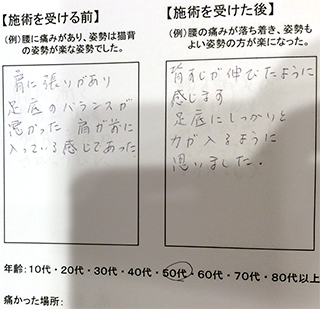 【施術を受ける前】
(例)腰に痛みがあり、姿勢は猫背
の姿勢が楽な姿勢でした。
肩に張りがあり
足底のバランスが
悪かった 肩が前に
入っている感じであった
【施術を受けた後】
(例)腰の痛みが落ち着き、姿勢も
よい姿勢の方が楽になった。
背すじが伸びたように
感じます
足底にしっかりと
力が入るように
思いました.
年齢:10代・20代・30代・40代・50代・60代・70代・80代以上
痛かった場所: